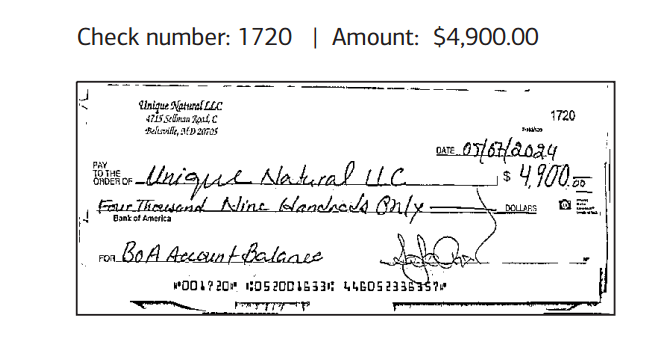 Check number: 1720 | Amount: $4,900.00
Unique Natural LLC
4715 Sellman Road, C
Beltsville, MD 20705
1720
DATE 05/07/2024
PAY TO THE ORDER OF Unique Natural LLC $ 4,900.00
Four Thousand Nine Handreds Only DOLLARS
Bank of America
FOR BoA Account Balance
⑈001720⑈ ⑆052001633⑆ 446052336357⑈